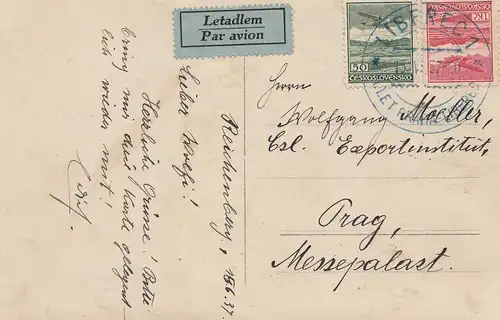 Letadlem
Par avion
50
ČESKOSLOVENSKO
1Kč
ČESKOSLOVENSKO
LIBEREC 1
Reichenberg, 15.6.37.
Lieber Woefi!
Herzliche Grüsse! Bitte
bring mir diese Karte gelegent-
lich wieder mit!
Herrn
Wolfgang Moeller,
Csl. Exportinstitut,
Prag,
Messepalast.